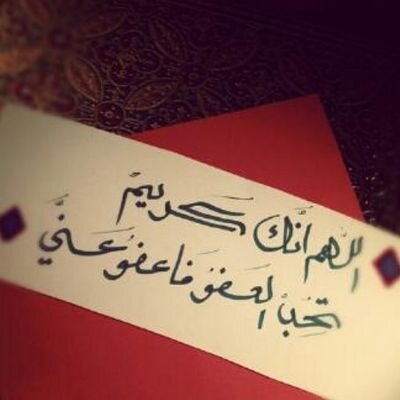 اللهم انَّك كَريمٌ
تحبُّ العَفوَ فاعفُ عَنَّي